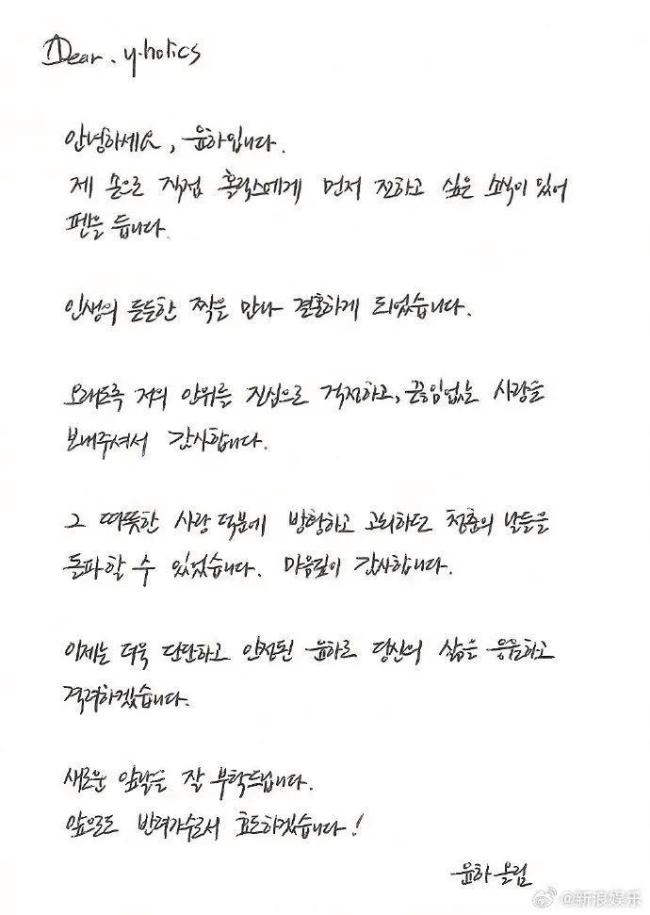 Dear. y.holics
안녕하세요, 윤하입니다.
제 손으로 직접 홀릭스에게 먼저 전하고 싶은 소식이 있어
펜을 듭니다.
인생의 든든한 짝을 만나 결혼하게 되었습니다.
오래도록 저의 안위를 진심으로 걱정하고, 끊임없는 사랑을
보내주셔서 감사합니다.
그 따뜻한 사랑 덕분에 방황하고 고뇌하던 청춘의 날들을
돌파할 수 있었습니다. 마음깊이 감사합니다.
이제는 더욱 단단하고 안정된 윤하로 당신의 삶을 응원하고
격려하겠습니다.
새로운 앞날을 잘 부탁드립니다.
앞으로도 반려가수로서 효도하겠습니다!
윤하 올림
@新浪娱乐